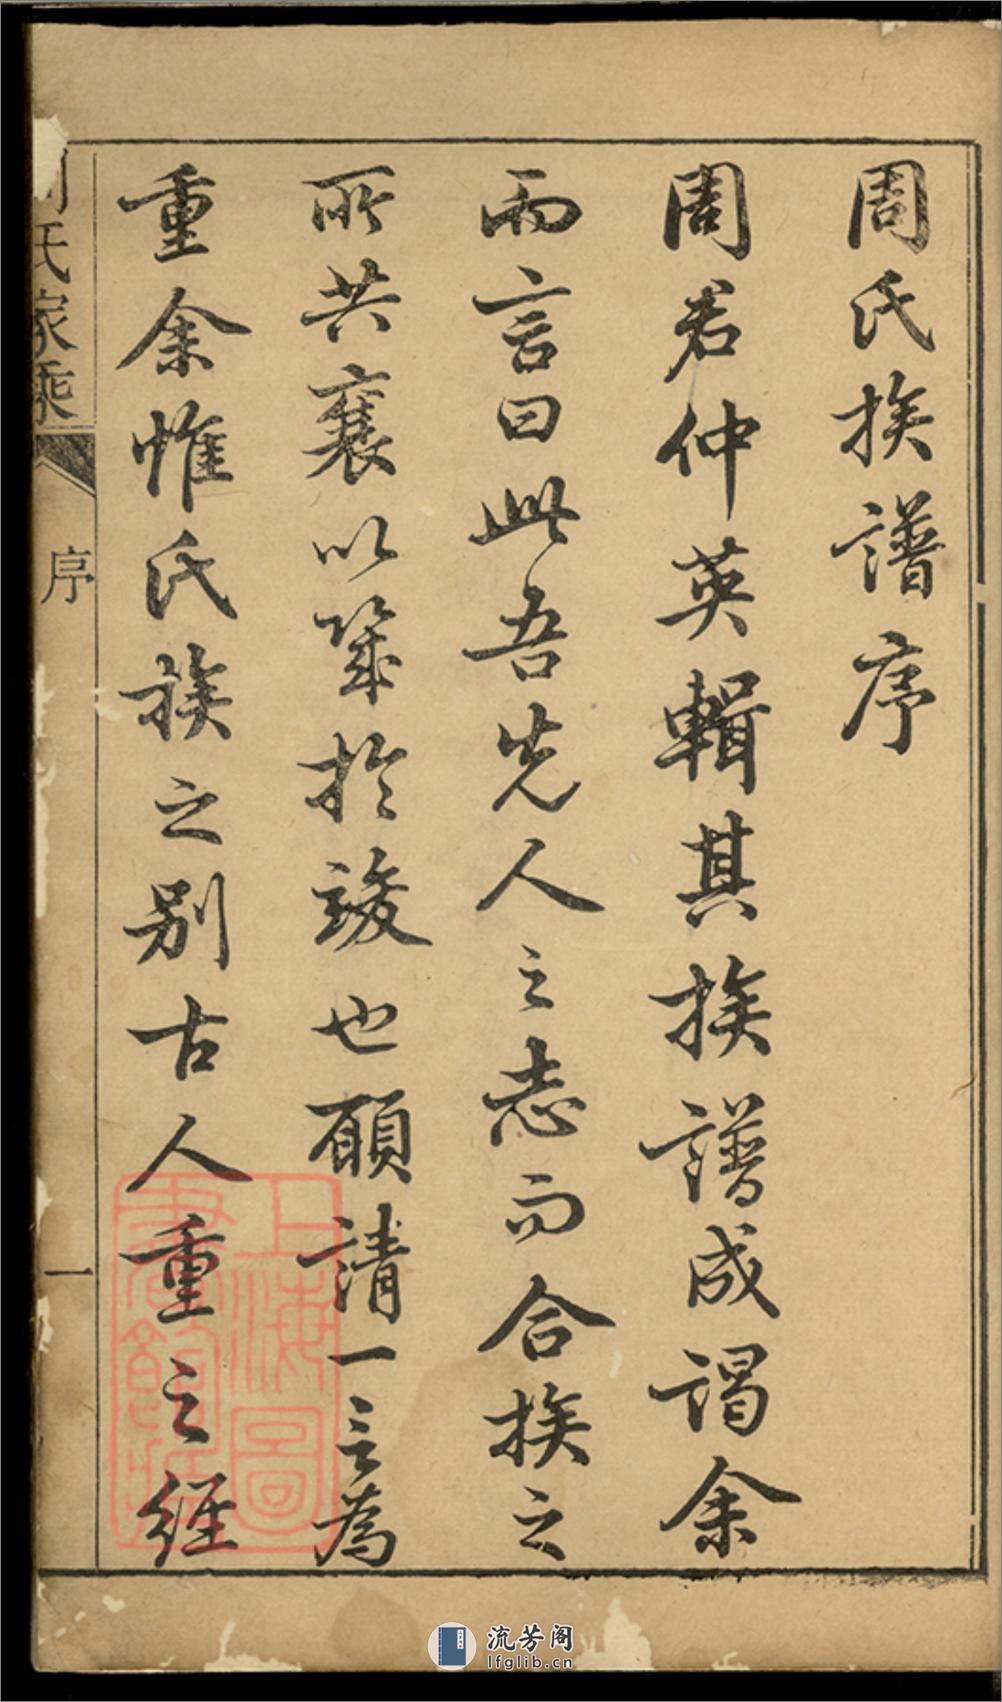 周氏族譜序
周君仲英輯其族譜成謁余
而言曰此吾先人之志而合族之
所共襄以筞於竣也願請一言為
重余惟氏族之別古人重之經
周氏家乘
序
一
上海圖書館藏
流芳阁
lfglib.cn